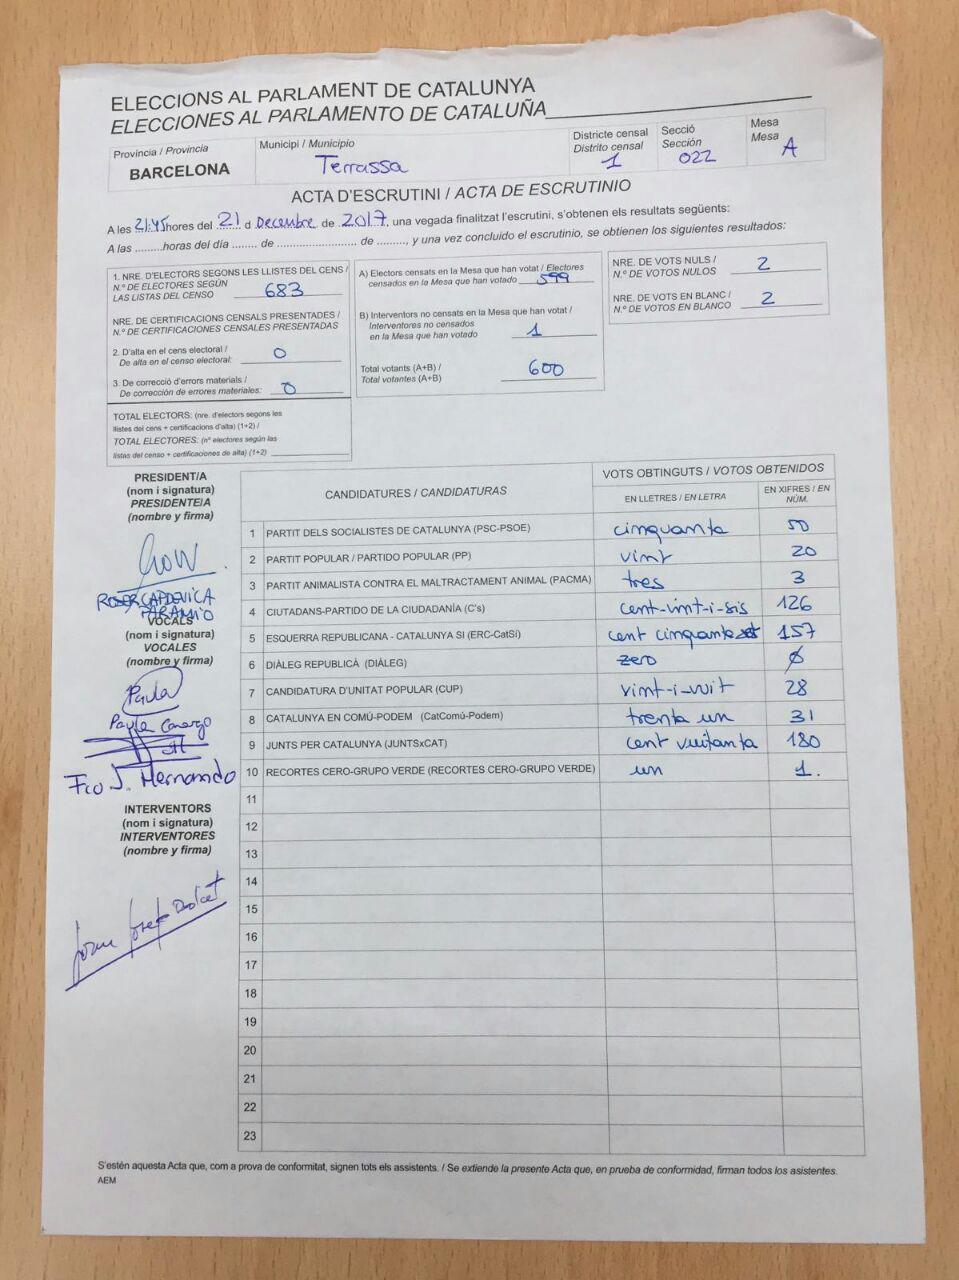 ELECCIONS AL PARLAMENT DE CATALUNYA
ELECCIONES AL PARLAMENTO DE CATALUÑA
Provincia / Provincia
BARCELONA
Municipi / Municipio
Terrassa
Districte censal
Distrito censal
1
Secció
Sección
022
Mesa
Mesa
A
ACTA D'ESCRUTINI / ACTA DE ESCRUTINIO
A les 21:45 hores del 21 d Decembre de 2017, una vegada finalitzat l'escrutini, s'obtenen els resultats següents:
A las .........horas del día ........ de ......................... de ........., y una vez concluido el escrutinio, se obtienen los siguientes resultados:
1. NRE. D'ELECTORS SEGONS LES LLISTES DEL CENS /
N.º DE ELECTORES SEGÚN
LAS LISTAS DEL CENSO 683
NRE. DE CERTIFICACIONS CENSALS PRESENTADES /
N.º DE CERTIFICACIONES CENSALES PRESENTADAS
2. D'alta en el cens electoral /
De alta en el censo electoral: 0
3. De correcció d'errors materials /
De corrección de errores materiales: 0
TOTAL ELECTORS: (nre. d'electors segons les
llistes del cens + certificacions d'alta) (1+2) /
TOTAL ELECTORES: (nº electores según las
listas del censo + certificaciones de alta) (1+2)
A) Electors censats en la Mesa que han votat / Electores
censados en la Mesa que han votado 599
B) Interventors no censats en la Mesa que han votat /
Interventores no censados
en la Mesa que han votado 1
Total votants (A+B) /
Total votantes (A+B) 600
NRE. DE VOTS NULS /
N.º DE VOTOS NULOS 2
NRE. DE VOTS EN BLANC /
N.º DE VOTOS EN BLANCO 2
PRESIDENT/A
(nom i signatura)
PRESIDENTE/A
(nombre y firma)
ROSER CAPDEVILA
PARAMIO
VOCALS
(nom i signatura)
VOCALES
(nombre y firma)
Paula
Paula
Fco J. Hernando
INTERVENTORS
(nom i signatura)
INTERVENTORES
(nombre y firma)
Joan Josep
CANDIDATURES / CANDIDATURAS
VOTS OBTINGUTS / VOTOS OBTENIDOS
EN LLETRES / EN LETRA
EN XIFRES / EN NÚM.
1 PARTIT DELS SOCIALISTES DE CATALUNYA (PSC-PSOE) cinquanta 50
2 PARTIT POPULAR / PARTIDO POPULAR (PP) vint 20
3 PARTIT ANIMALISTA CONTRA EL MALTRACTAMENT ANIMAL (PACMA) tres 3
4 CIUTADANS-PARTIDO DE LA CIUDADANÍA (C's) cent-vint-i-sis 126
5 ESQUERRA REPUBLICANA - CATALUNYA SI (ERC-CatSí) cent cinquanta set 157
6 DIÀLEG REPUBLICÀ (DIÀLEG) zero 0
7 CANDIDATURA D'UNITAT POPULAR (CUP) vint-i-vuit 28
8 CATALUNYA EN COMÚ-PODEM (CatComú-Podem) trenta un 31
9 JUNTS PER CATALUNYA (JUNTSxCAT) cent vuitanta 180
10 RECORTES CERO-GRUPO VERDE (RECORTES CERO-GRUPO VERDE) un 1.
11
12
13
14
15
16
17
18
19
20
21
22
23
S'estén aquesta Acta que, com a prova de conformitat, signen tots els assistents. / Se extiende la presente Acta que, en prueba de conformidad, firman todos los asistentes.
AEM